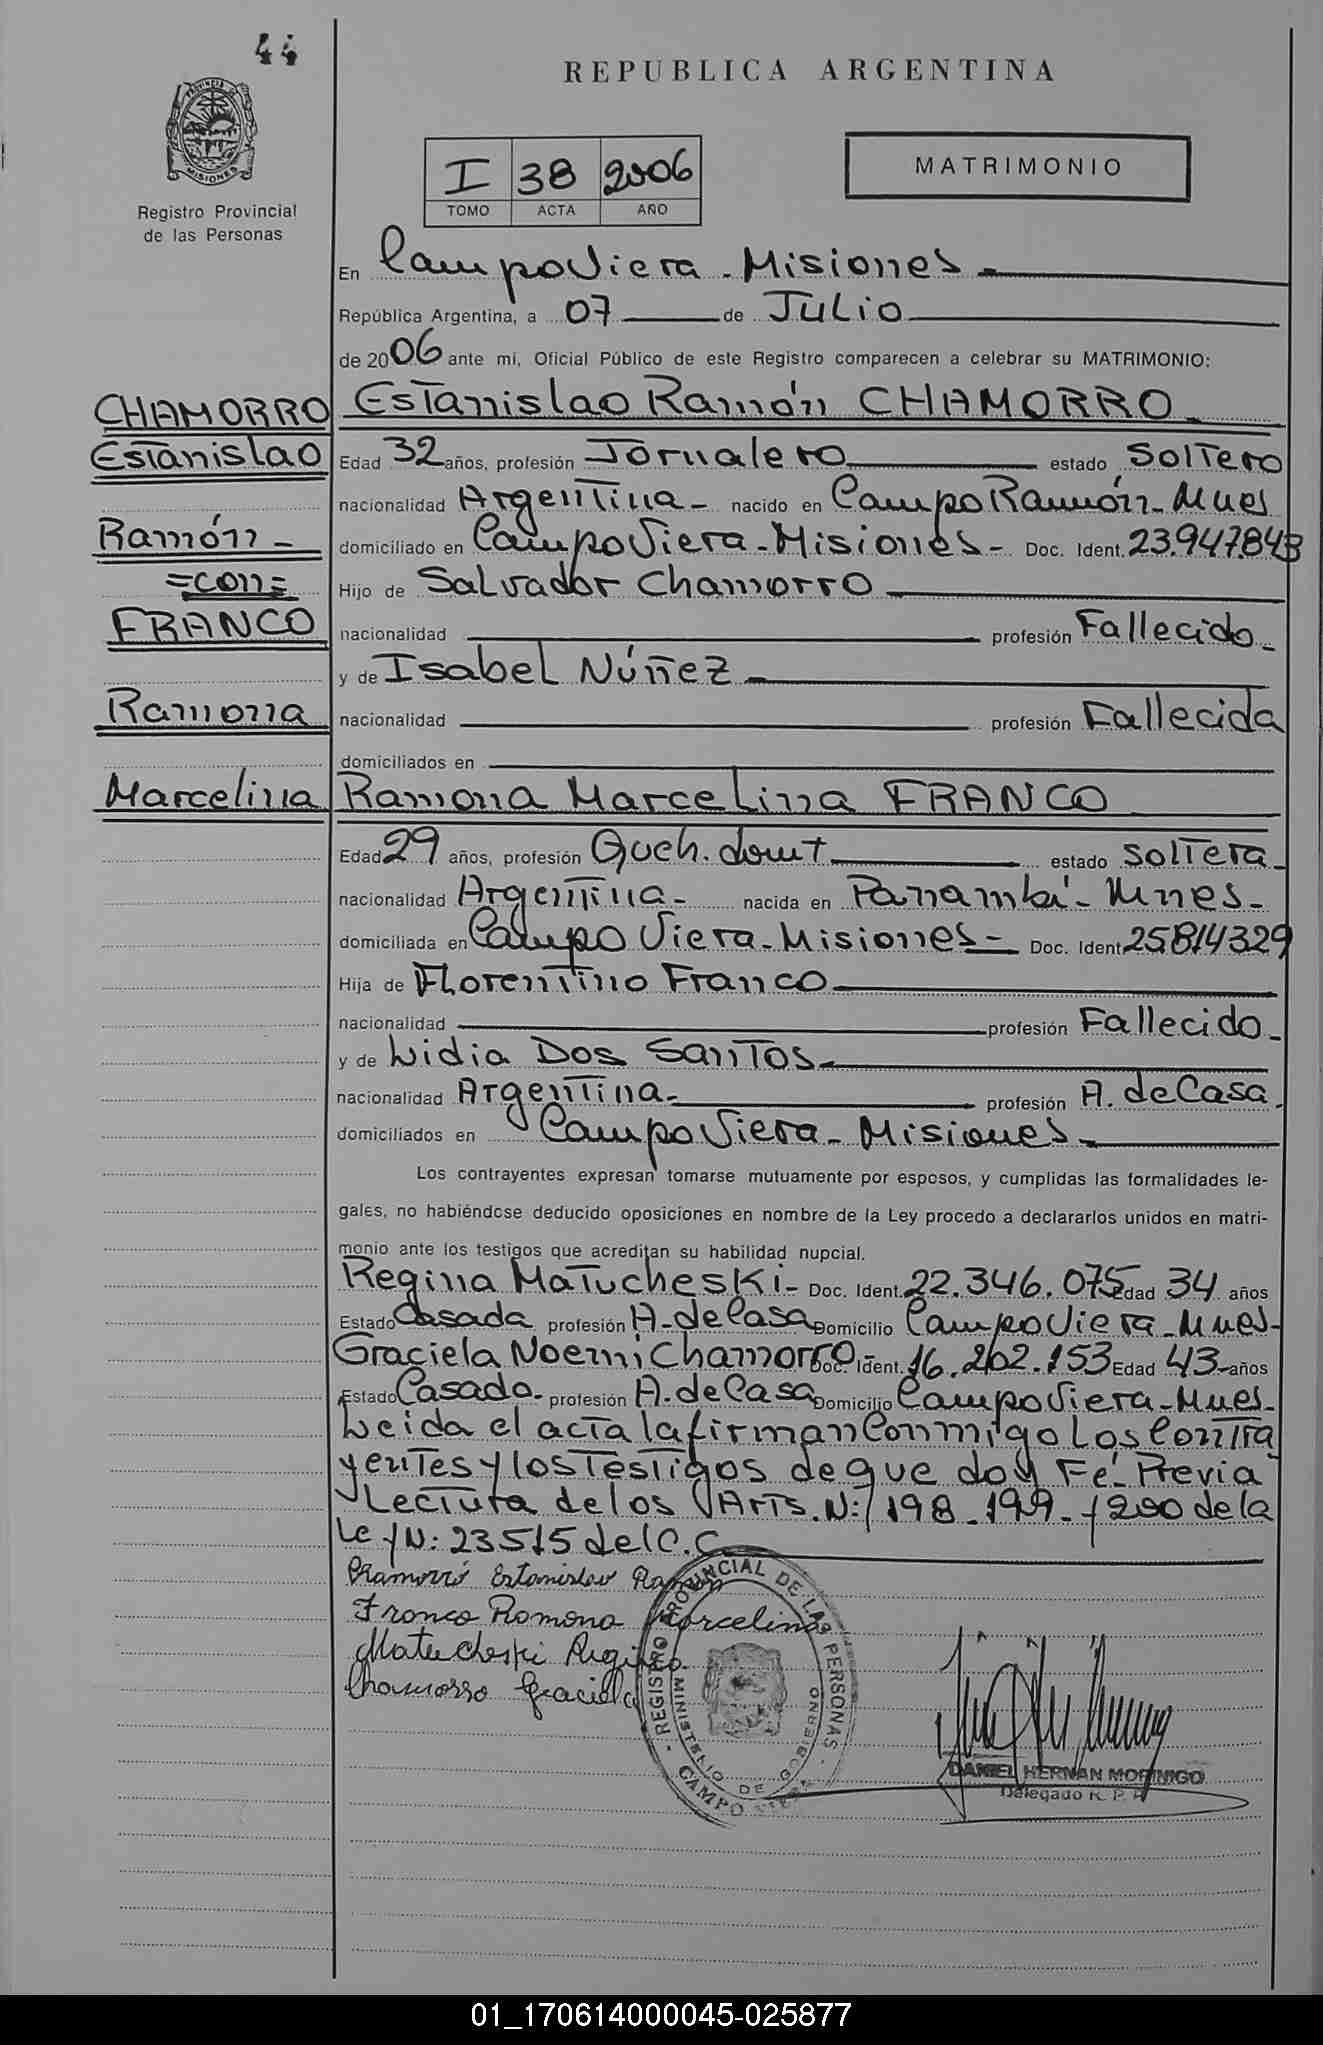 44
REPUBLICA ARGENTINA
PROVINCIA DE MISIONES
Registro Provincial
de las Personas
I 38 2006
TOMO ACTA AÑO
MATRIMONIO
En Campo Viera - Misiones -
República Argentina, a 07 de JULIO
de 2006 ante mi, Oficial Público de este Registro comparecen a celebrar su MATRIMONIO:
CHAMORRO Estanislao Ramón CHAMORRO
Estanislao Edad 32 años, profesión Jornalero estado Soltero
nacionalidad Argentina - nacido en Campo Ramón - Mnes
Ramón - domiciliado en Campo Viera - Misiones - Doc. Ident. 23.947.843
=con= Hijo de Salvador Chamorro
FRANCO nacionalidad profesión Fallecido -
y de Isabel Núñez -
Ramona nacionalidad profesión Fallecida
domiciliados en
Marcelina Ramona Marcelina FRANCO
Edad 29 años, profesión Queh. domt estado Soltera -
nacionalidad Argentina - nacida en Panambí - Mnes -
domiciliada en Campo Viera - Misiones - Doc. Ident. 25814329
Hija de Florentino Franco
nacionalidad profesión Fallecido -
y de Lidia Dos Santos -
nacionalidad Argentina - profesión A. de Casa.
domiciliados en Campo Viera - Misiones -
Los contrayentes expresan tomarse mutuamente por esposos, y cumplidas las formalidades le-
gales, no habiéndose deducido oposiciones en nombre de la Ley procedo a declararlos unidos en matri-
monio ante los testigos que acreditan su habilidad nupcial.
Regina Matucheski - Doc. Ident. 22.346.075 Edad 34 años
Estado Casada profesión A. de Casa Domicilio Campo Viera - Mnes -
Graciela Noemi Chamorro - Doc. Ident. 16.202.153 Edad 43 - años
Estado Casada - profesión A. de Casa Domicilio Campo Viera - Mnes -
Leida el acta la firman conmigo Los Contra
yentes y los Testigos de que doy Fé - Previa
Lectura de los Arts. N: 198 - 199 - y 200 de la
Ley N: 23515 del C.C.
Chamorro Estanislao Ramon
Franco Ramona Marcelina
Matucheski Regina
Chamorro Graciela
REGISTRO PROVINCIAL DE LAS PERSONAS
MINISTERIO DE GOBIERNO
CAMPO VIERA
DANIEL HERNAN MORINIGO
Delegado R. P. P.
01_170614000045-025877